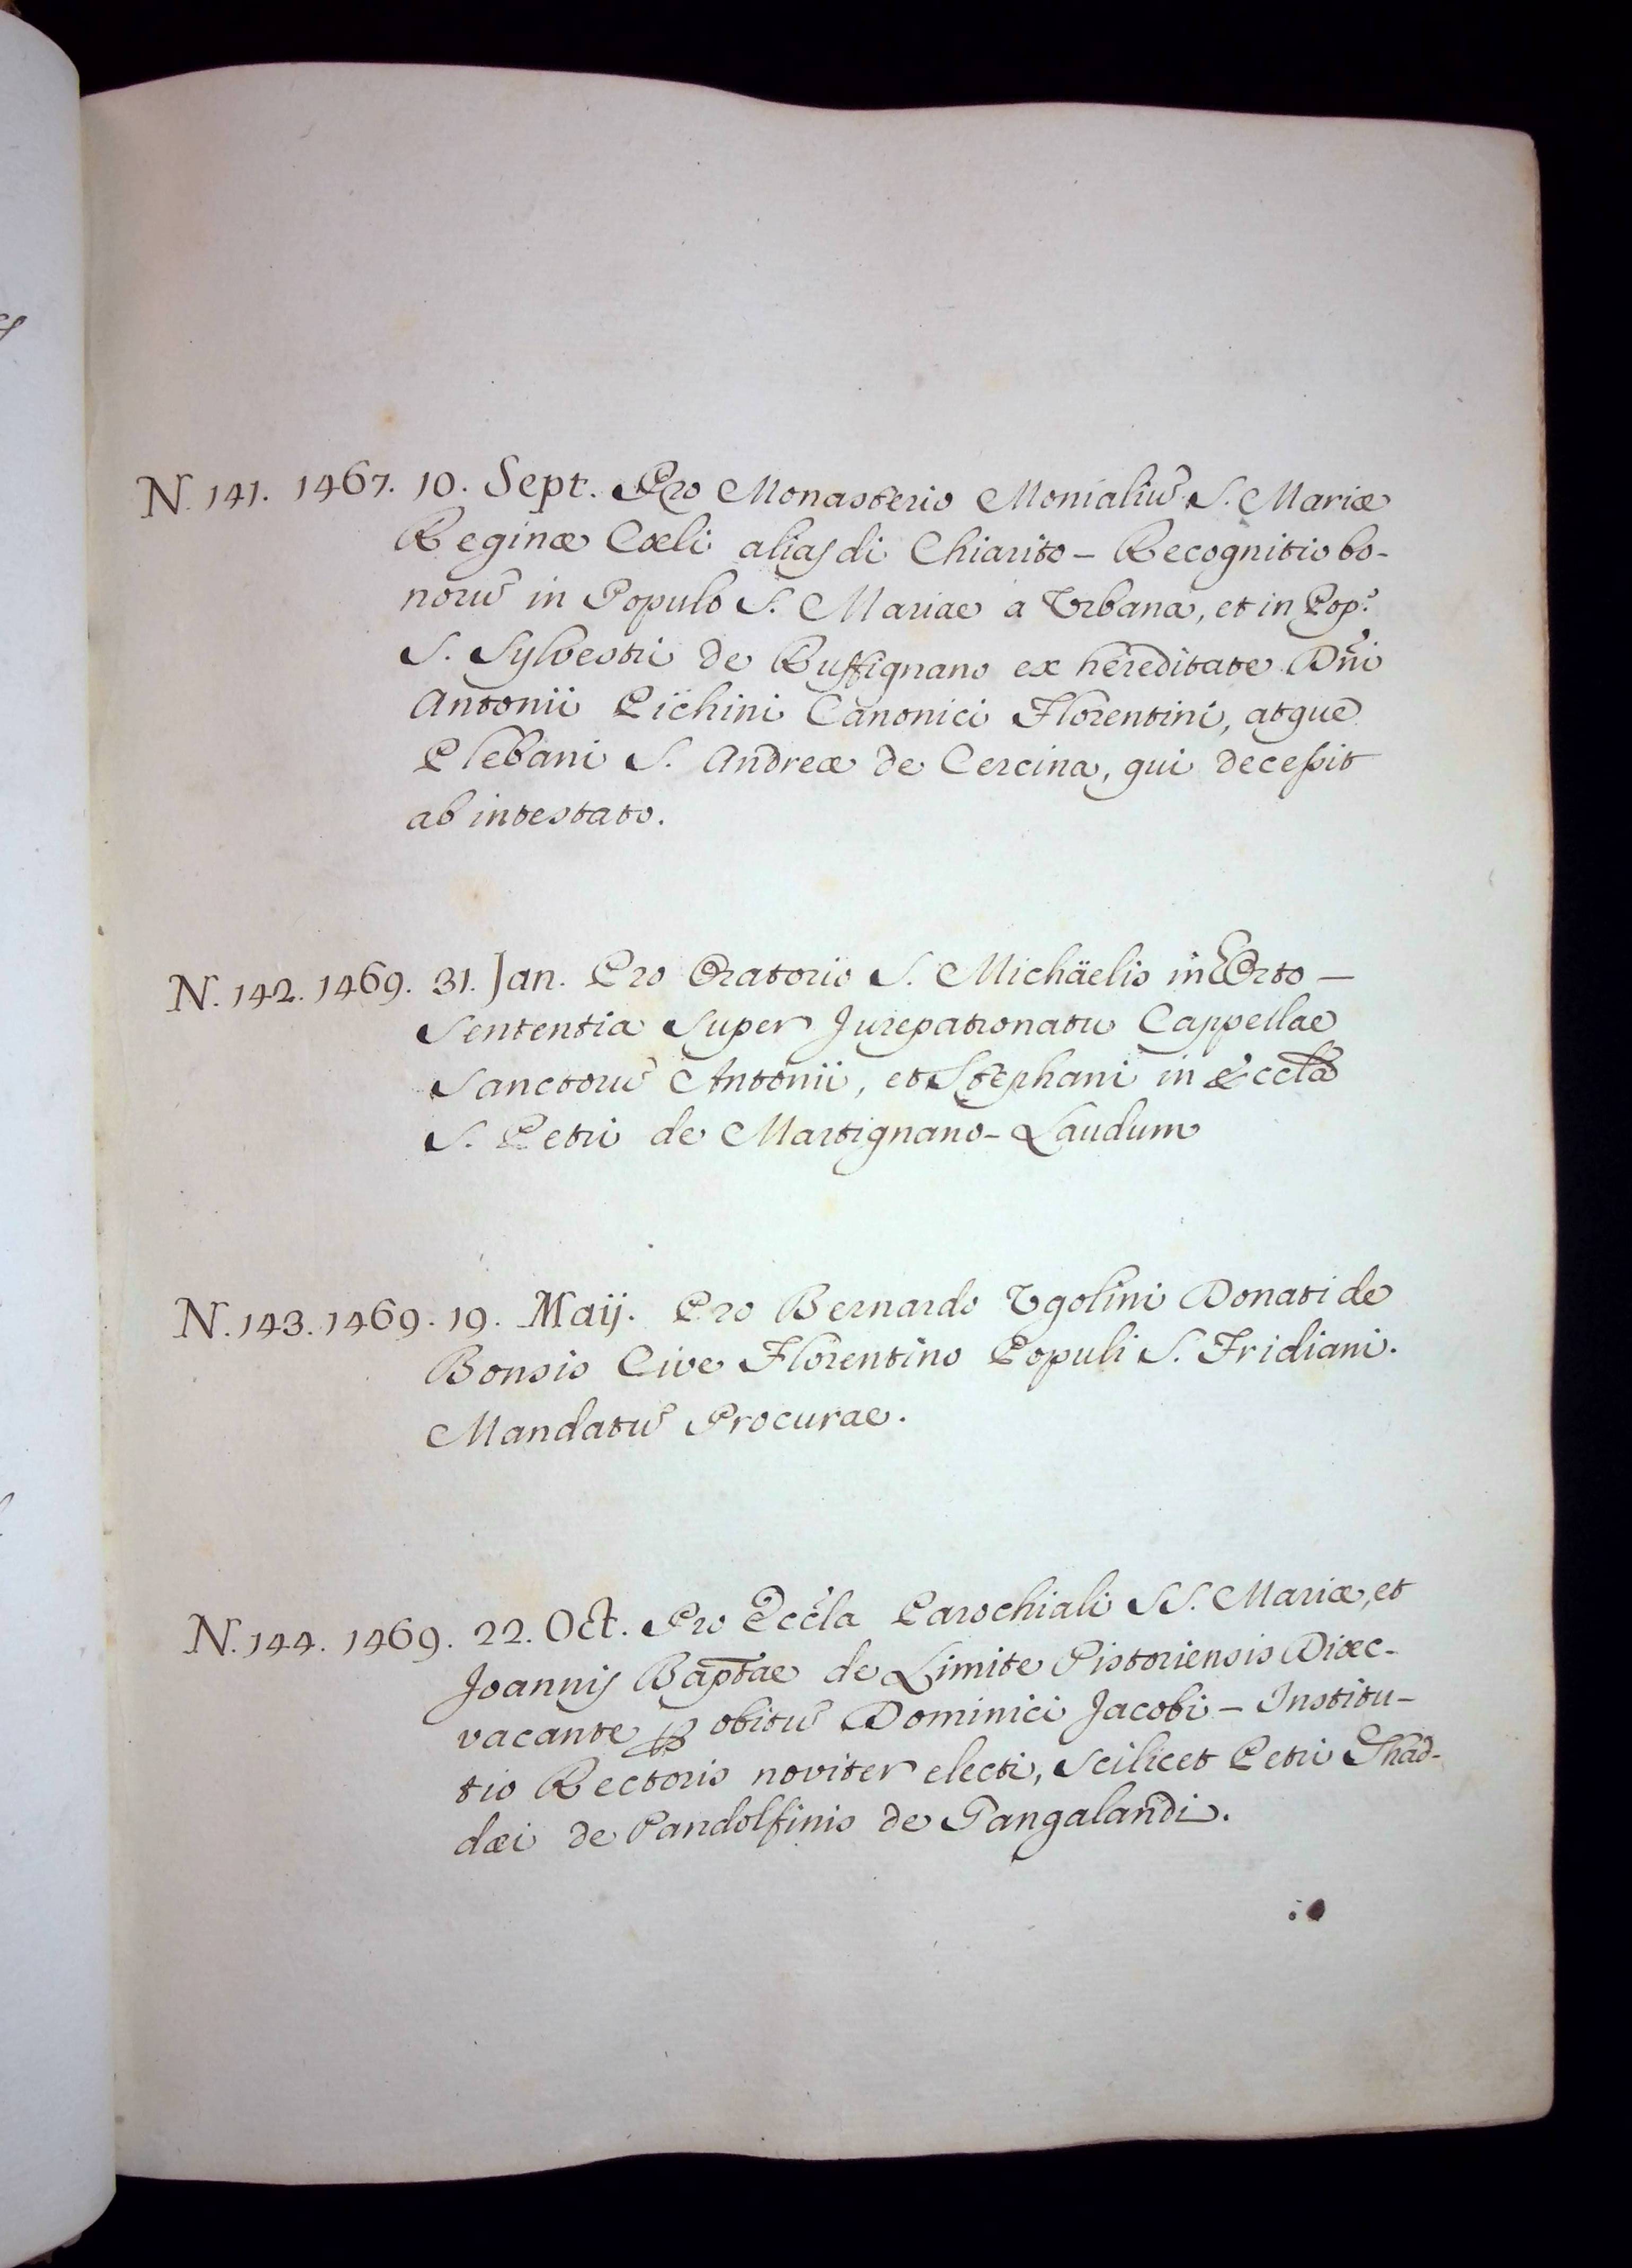 N. 141. 1467. 10. Sept. Pro Monasterio Monialiũ S. Mariæ
Reginæ Cœli alias di Chiarito – Recognitio bo-
norũ in Populo S. Mariae a Urbana, et in Pop.º
S. Sylvestri de Ruffignano ex hereditate Dñi
Antonii Pichini Canonici Florentini, atque
Plebani S. Andreæ de Cercina, qui decessit
ab intestato.
N. 142. 1469. 31. Jan. Pro Oratorio S. Michäelis in Orto –
Sententia super Jurepatronatu Cappellae
Sanctorũ Antonii, et Stephani in Eccła
S. Petri de Martignano – Laudum
N. 143. 1469. 19. Maij. Pro Bernardo Ugolini Donati de
Bonsis Cive Florentino Populi S. Fridiani.
Mandatũ Procurae.
N. 144. 1469. 22. Oct. Pro Eccła Parochiali SS. Mariæ, et
Joannis Bap̃tae de Limite Pistoriensis Diœc-
vacante ꝑ obitũ Dominici Jacobi – Institu-
tio Rectoris noviter electi, scilicet Petri Thad-
dæi de Pandolfinis de Gangalandi.